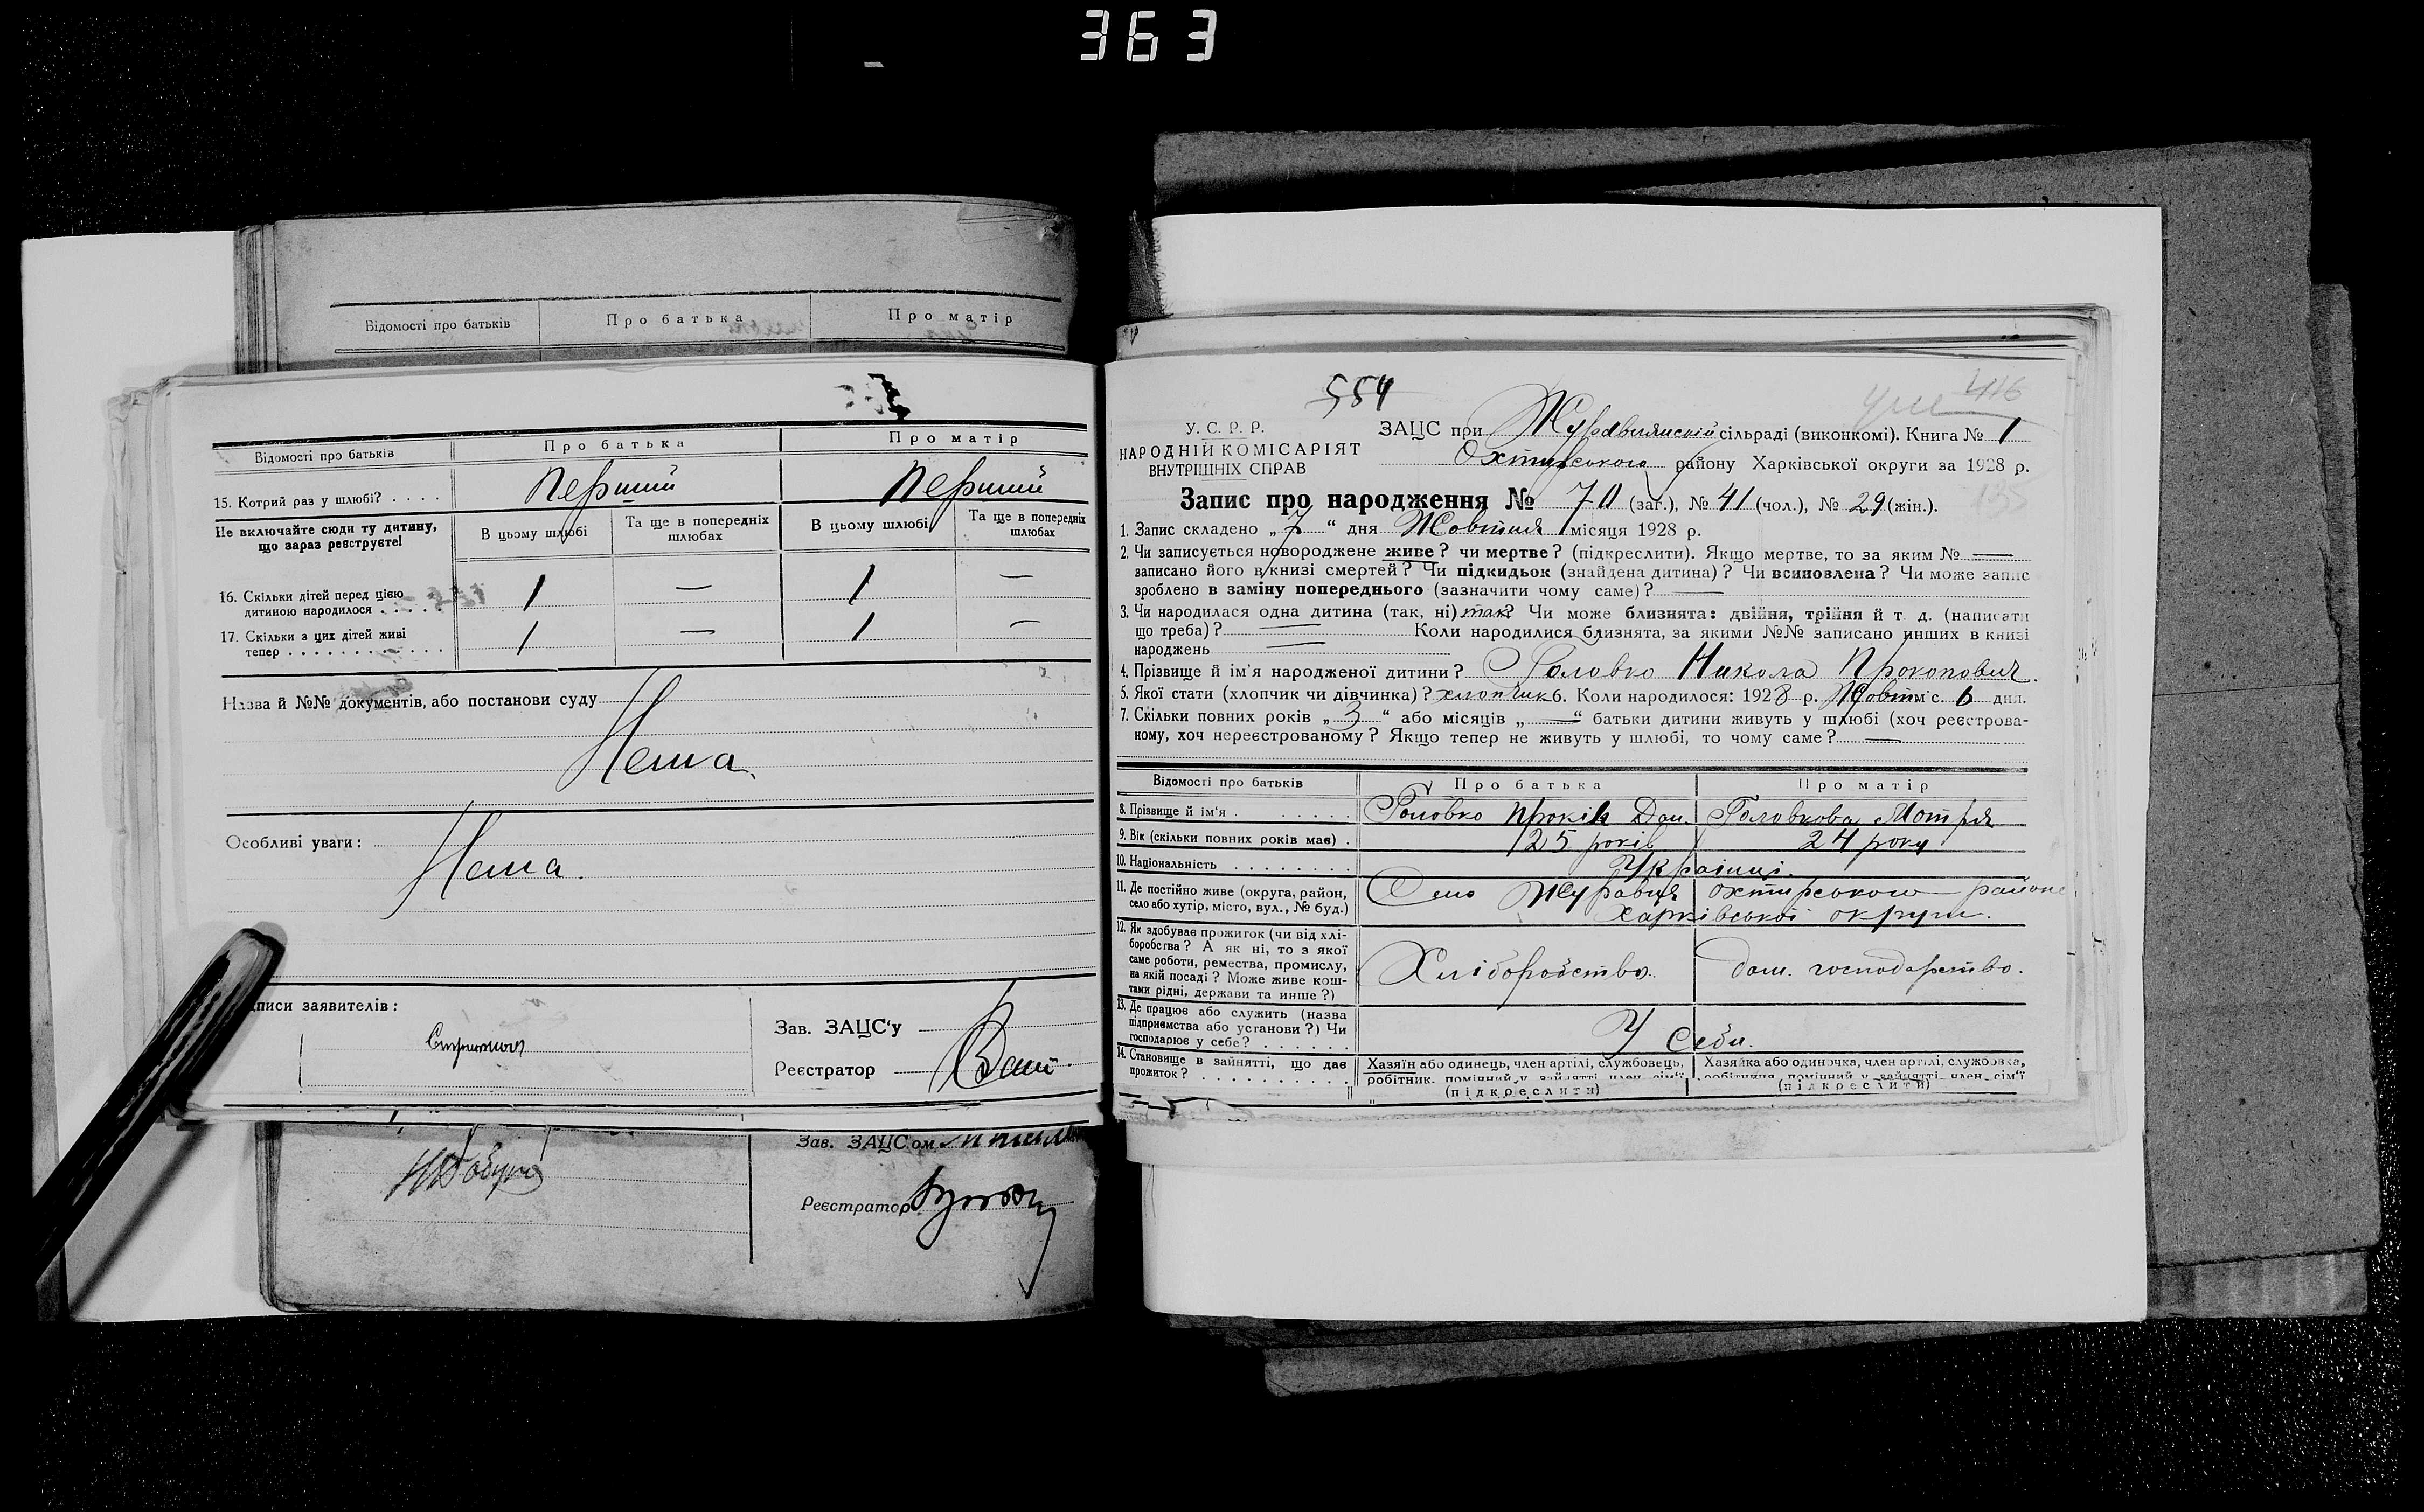 363
Відомості про батьків Про батька Про матір
Відомості про батьків Про батька Про матір
15. Котрий раз у шлюбі? . . . . Перший Перший
Не включайте сюди ту дитину, що зараз реєструєте!
В цьому шлюбі Та ще в попередніх шлюбах В цьому шлюбі Та ще в попередніх шлюбах
16. Скільки дітей перед цією
дитиною народилося . . . . . 1 — 1 —
17. Скільки з цих дітей живі
тепер . . . . . . . . . . . . 1 — 1 —
Назва й №№ документів, або постанови суду
Нема
Особливі уваги:
Нема.
писи заявителів:
Зав. ЗАЦС'у
Реєстратор
Зав. ЗАЦС'ом
Реєстратор
554
416
У. С. Р. Р.
НАРОДНІЙ КОМІСАРІЯТ
ВНУТРІШНІХ СПРАВ
ЗАЦС при Журавлянській сільраді (виконкомі). Книга № 1
Охтирського району Харківської округи за 1928 р.
135
Запис про народження № 70 (заг.), № 41 (чол.), № 29 (жін.).
1. Запис складено „7“ дня Жовтня місяця 1928 р.
2. Чи записується новороджене живе? чи мертве? (підкреслити). Якщо мертве, то за яким № —
записано його в книзі смертей? Чи підкидьок (знайдена дитина)? Чи всиновлена? Чи може запис
зроблено в заміну попереднього (зазначити чому саме)? —
3. Чи народилася одна дитина (так, ні) так? Чи може близнята: двійня, трійня й т. д. (написати
що треба)? — Коли народилися близнята, за якими №№ записано инших в книзі
народжень —
4. Прізвище й ім'я народженої дитини? Головко Микола Прокопович.
5. Якої стати (хлопчик чи дівчинка)? хлопчик 6. Коли народилося: 1928 р. Жовтн міс. 6 дня.
7. Скільки повних років „3“ або місяців „—“ батьки дитини живуть у шлюбі (хоч реєстрова-
ному, хоч нереєстрованому? Якщо тепер не живуть у шлюбі, то чому саме? —
Відомості про батьків Про батька Про матір
8. Прізвище й ім'я . . . . . . Головко Прокіп Дан. Головкова Мотря
9. Вік (скільки повних років має) . 25 років 24 року
10. Національність . . . . . . . . Українці.
11. Де постійно живе (округа, район,
село або хутір, місто, вул., № буд.)
Село Журавня Охтирського району
Харківської округи.
12. Як здобуває прожиток (чи від хлі-
боробства? А як ні, то з якої
саме роботи, ремества, промислу,
на якій посаді? Може живе кош-
тами рідні, держави та инше?)
Хліборобство. дом. господарство.
13. Де працює або служить (назва
підприємства або установи?) Чи
господарює у себе? . . . . . .
У Себи.
14. Становище в зайнятті, що дає
прожиток? . . . . . . . . . .
Хазяїн або одинець, член артілі, службовець, Хазяйка або одиночка, член артілі, службовка,
робітник, помічний у зайнятті член сім'ї робітниця, помічний у зайнятті член сім'ї
(підкреслити) (підкреслити)